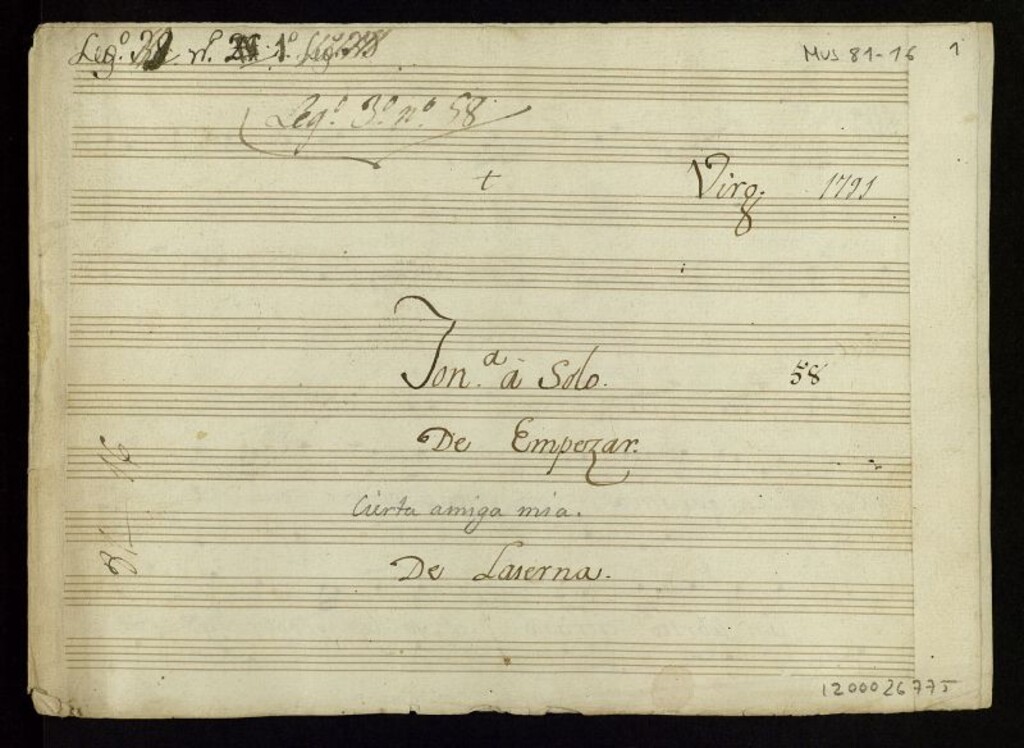 Leg.º nº. 1º
Mus 81-16 1
Leg.º 3.º nº. 58
t
Virg. 1791
Ton.ª à Solo. 58
De Empezar.
Cierta amiga mia.
De Laserna.
81-16
1200026775